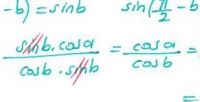 -b) = sinb sin(π/2 - b
sinb . cosa / cosb . sinb = cosa / cosb =
=